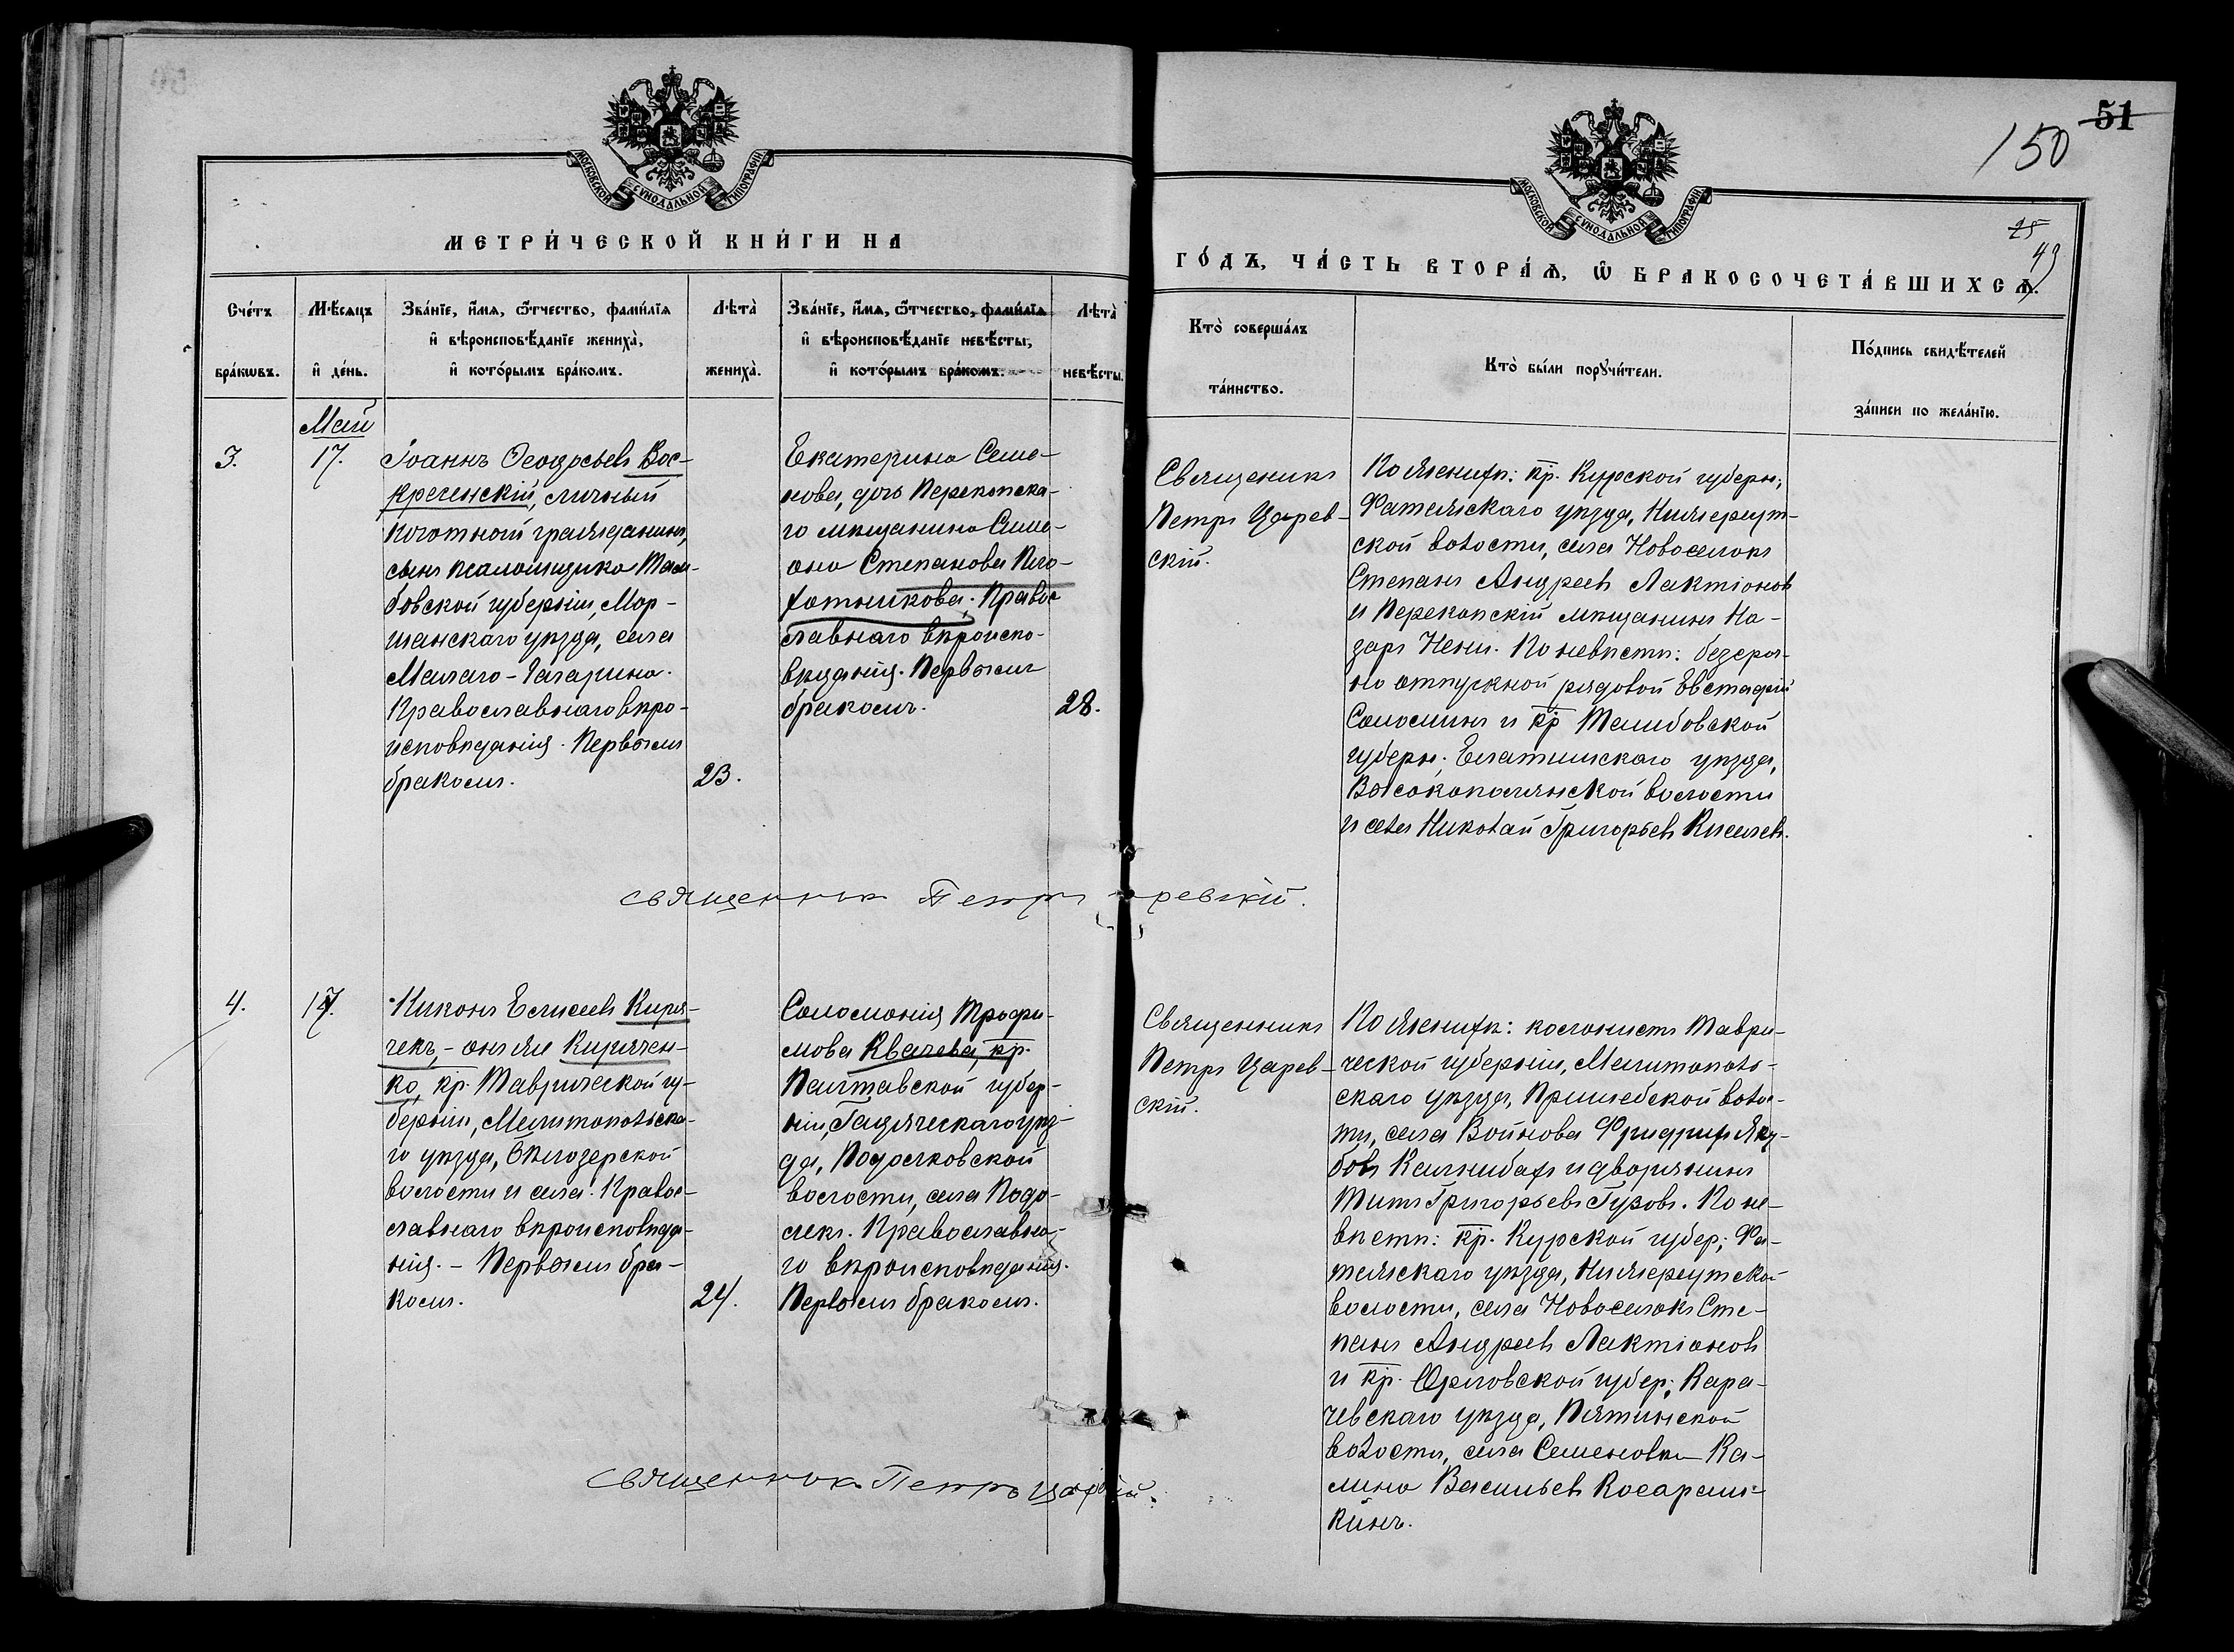 51
150
25
49
МОСКОВСКОЙ СѴНОДАЛЬНОЙ ТИПОГРАФІИ
МОСКОВСКОЙ СѴНОДАЛЬНОЙ ТИПОГРАФІИ
МЕТРИ́ЧЕСКОЙ КНИ́ГИ НА
ГО́ДЪ, ЧА́СТЬ ВТОРА́Ѧ, Ѡ БРАКОСОЧЕТА́ВШИХСѦ.
Сче́тъ бра́кѡвъ.
Мѣ́сяцъ и де́нь.
Зва́нїе, и́мѧ, ѻ́тчество, фами́лїѧ
и вѣроисповѣ́данїе жениха̀,
и кото́рымъ бра́комъ.
Лѣта̀ жениха̀.
Зва́нїе, и́мѧ, ѻ́тчество, фами́лїѧ
и вѣроисповѣ́данїе невѣ́сты,
и кото́рымъ бра́комъ.
Лѣта̀ невѣ́сты.
Кто̀ соверша́лъ
та́инство.
Кто̀ бы́ли порꙋчи́тели.
По́дпись свидѣ́телей
за́писи по жела́нїю.
Май
3.
17.
Іоаннъ Ѳеодосьевъ Вос-
кресенскій, личный
почотный гражданинъ,
сынъ псаломщика Там-
бовской губерніи, Мор-
шанскаго уѣзда, села
Малаго-Гагарина.
Православнаго вѣро-
исповѣданія. Первымъ
бракомъ.
23.
Екатерина Семе-
нова, дочь Перекопска-
го мѣщанина Симе-
она Степанова Пло-
хотникова. Право-
славнаго вѣроиспо-
вѣданія. Первымъ
бракомъ.
28.
Священникъ
Петръ Царев-
скій.
По женихѣ: кр. Курской губерн.,
Фатежскаго уѣзда, Нижереут-
ской волости, села Новоселокъ
Степанъ Андреевъ Лактіоновъ
и Перекопскій мѣщанинъ На-
заръ Нени. По невѣстѣ: безсроч-
но отпускной рядовой Евстафій
Соломинъ и кр. Тамбовской
губерн. Елатмискаго уѣзда,
Высокополянской волости
и села Николай Григорьевъ Киселевъ.
Священникъ Петръ Царевскій.
4.
17.
Никонъ Елисеевъ Киря-
чекъ,- онъ же Кирячен-
ко, кр. Таврической гу-
берніи, Мелитопольска-
го уѣзда, Бѣлозерской
волости и села. Право-
славнаго вѣроисповѣда-
нія. - Первымъ бра-
комъ.
24.
Соломонія Трофи-
мова Квачева, кр.
Полтавской губер-
ніи, Гадяческаго уѣз-
да, Подолковской
волости, села Подо-
лекъ. Православна-
го вѣроисповѣданія.
Первымъ бракомъ.
Священникъ
Петръ Царев-
скій.
По женихѣ: колонистъ Таври-
ческой губерніи, Мелитополь-
скаго уѣзда, Пришебской волос-
ти, села Войнова Фридрихъ Яку-
бовъ Кальнибахъ и дворянинъ
Титъ Григорьевъ Гузовъ. По не-
вѣстѣ: кр. Курской губер., Фа-
тежскаго уѣзда, Нижереутской
волости, села Новоселокъ Сте-
панъ Андреевъ Лактіоновъ
и кр. Орловской губер., Кара-
чевскаго уѣзда, Пятинской
волости, села Семеновки Ка-
лина Васильевъ Косарем-
кинъ.
Священникъ Петръ Царевскій.